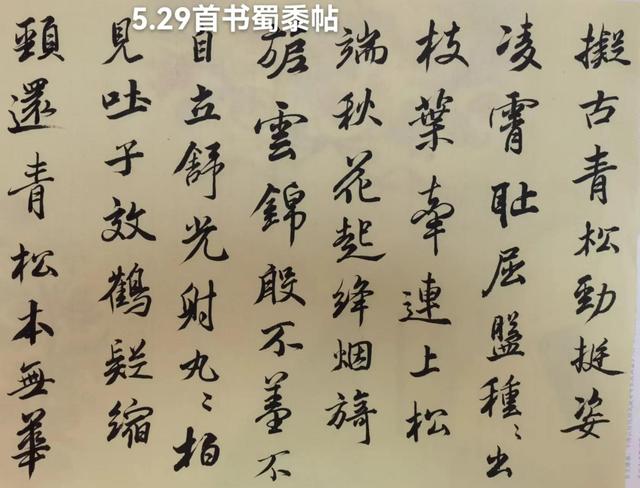 5.29首书蜀黍帖
擬古青松勁挺姿
凌霄耻屈盤種〻出
枝葉牽連上松
端秋花起絳烟旖
旎雲錦殷不羞不
自立舒光射丸〻柏
見吐子效鶴疑缩
頸還青松本無華